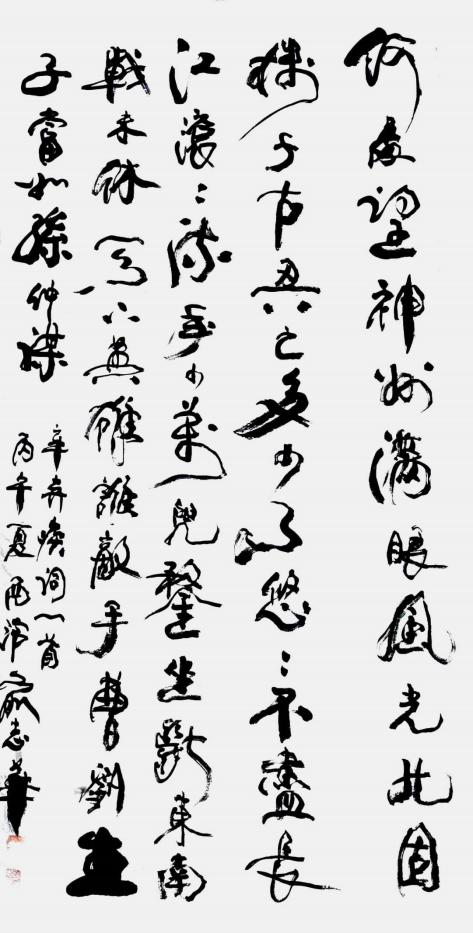 何處望神州滿眼風光北固
樓千古興亡多少事悠〻不盡長
江滾〻流年少萬兜鍪坐斷東南
戰未休天下英雄誰敵手曹劉生
子當如孫仲謀
辛弃疾詞一首
丙午夏西泠志華